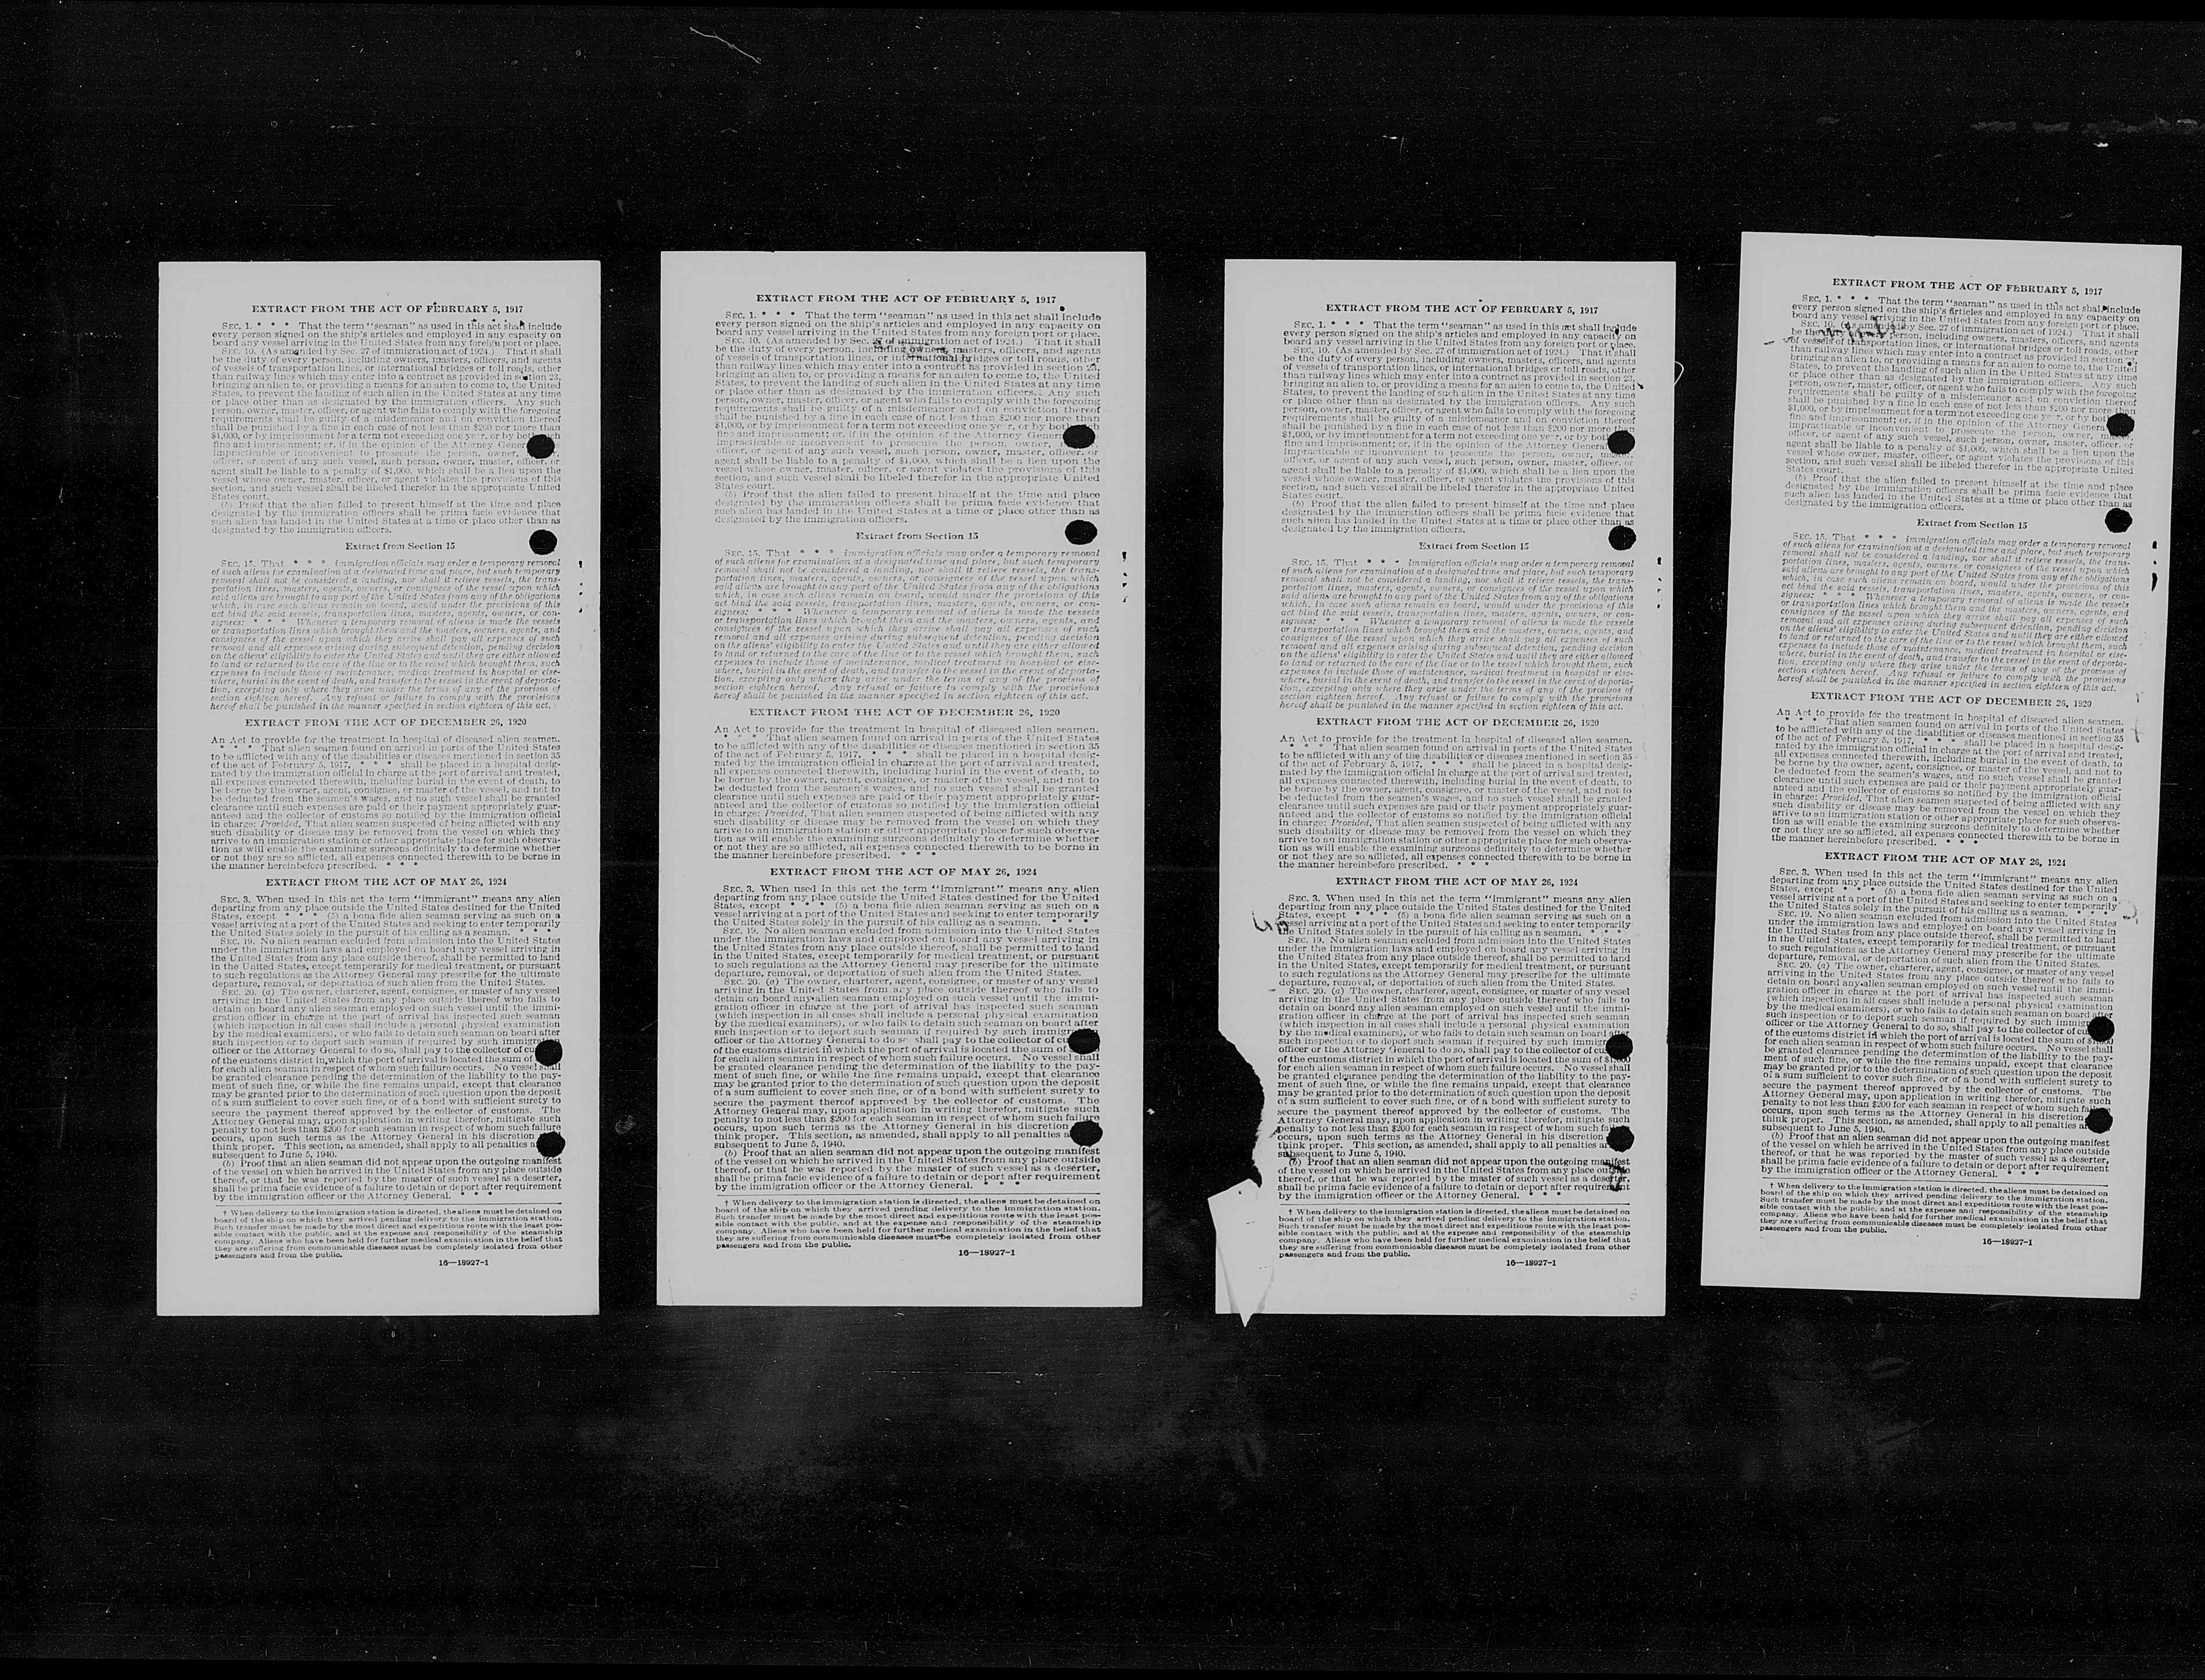 EXTRACT FROM THE ACT OF FEBRUARY 5, 1917
SEC. 1. * * * That the term "seaman" as used in this act shall include
every person signed on the ship's articles and employed in any capacity on
board any vessel arriving in the United States from any foreign port or place.
SEC. 10. (As amended by Sec. 27 of immigration act of 1924.) That it shall
be the duty of every person, including owners, masters, officers, and agents
of vessels of transportation lines, or international bridges or toll roads, other
than railway lines which may enter into a contract as provided in section 23,
bringing an alien to, or providing a means for an alien to come to, the United
States, to prevent the landing of such alien in the United States at any time
or place other than as designated by the immigration officers. Any such
person, owner, master, officer, or agent who fails to comply with the foregoing
requirements shall be guilty of a misdemeanor and on conviction thereof
shall be punished by a fine in each case of not less than $200 nor more than
$1,000, or by imprisonment for a term not exceeding one year, or by both such
fine and imprisonment; or, if in the opinion of the Attorney General
impracticable or inconvenient to prosecute the person, owner,
officer, or agent of any such vessel, such person, owner, master, officer, or
agent shall be liable to a penalty of $1,000, which shall be a lien upon the
vessel whose owner, master, officer, or agent violates the provisions of this
section, and such vessel shall be libeled therefor in the appropriate United
States court.
(b) Proof that the alien failed to present himself at the time and place
designated by the immigration officers shall be prima facie evidence that
such alien has landed in the United States at a time or place other than as
designated by the immigration officers.
Extract from Section 15
SEC. 15. That * * * immigration officials may order a temporary removal
of such aliens for examination at a designated time and place, but such temporary
removal shall not be considered a landing, nor shall it relieve vessels, the trans-
portation lines, masters, agents, owners, or consignees of the vessel upon which
said aliens are brought to any port of the United States from any of the obligations
which, in case such aliens remain on board, would under the provisions of this
act bind the said vessels, transportation lines, masters, agents, owners, or con-
signees: * * * Whenever a temporary removal of aliens is made the vessels
or transportation lines which brought them and the masters, owners, agents, and
consignees of the vessel upon which they arrive shall pay all expenses of such
removal and all expenses arising during subsequent detention, pending decision
on the aliens' eligibility to enter the United States and until they are either allowed
to land or returned to the care of the line or to the vessel which brought them, such
expenses to include those of maintenance, medical treatment in hospital or else-
where, burial in the event of death, and transfer to the vessel in the event of deporta-
tion, excepting only where they arise under the terms of any of the provisos of
section eighteen hereof. Any refusal or failure to comply with the provisions
hereof shall be punished in the manner specified in section eighteen of this act.
EXTRACT FROM THE ACT OF DECEMBER 26, 1920
An Act to provide for the treatment in hospital of diseased alien seamen.
* * * That alien seamen found on arrival in ports of the United States
to be afflicted with any of the disabilities or diseases mentioned in section 35
of the act of February 5, 1917, * * * shall be placed in a hospital desig-
nated by the immigration official in charge at the port of arrival and treated,
all expenses connected therewith, including burial in the event of death, to
be borne by the owner, agent, consignee, or master of the vessel, and not to
be deducted from the seamen's wages, and no such vessel shall be granted
clearance until such expenses are paid or their payment appropriately guar-
anteed and the collector of customs so notified by the immigration official
in charge: Provided, That alien seamen suspected of being afflicted with any
such disability or disease may be removed from the vessel on which they
arrive to an immigration station or other appropriate place for such observa-
tion as will enable the examining surgeons definitely to determine whether
or not they are so afflicted, all expenses connected therewith to be borne in
the manner hereinbefore prescribed. * * *
EXTRACT FROM THE ACT OF MAY 26, 1924
SEC. 3. When used in this act the term "immigrant" means any alien
departing from any place outside the United States destined for the United
States, except * * * (5) a bona fide alien seaman serving as such on a
vessel arriving at a port of the United States and seeking to enter temporarily
the United States solely in the pursuit of his calling as a seaman. * * *
SEC. 19. No alien seaman excluded from admission into the United States
under the immigration laws and employed on board any vessel arriving in
the United States from any place outside thereof, shall be permitted to land
in the United States, except temporarily for medical treatment, or pursuant
to such regulations as the Attorney General may prescribe for the ultimate
departure, removal, or deportation of such alien from the United States.
SEC. 20. (a) The owner, charterer, agent, consignee, or master of any vessel
arriving in the United States from any place outside thereof who fails to
detain on board any alien seaman employed on such vessel until the immi-
gration officer in charge at the port of arrival has inspected such seaman
(which inspection in all cases shall include a personal physical examination
by the medical examiners), or who fails to detain such seaman on board after
such inspection or to deport such seaman if required by such immigration
officer or the Attorney General to do so, shall pay to the collector of
of the customs district in which the port of arrival is located the sum of
for each alien seaman in respect of whom such failure occurs. No vessel shall
be granted clearance pending the determination of the liability to the pay-
ment of such fine, or while the fine remains unpaid, except that clearance
may be granted prior to the determination of such question upon the deposit
of a sum sufficient to cover such fine, or of a bond with sufficient surety to
secure the payment thereof approved by the collector of customs. The
Attorney General may, upon application in writing therefor, mitigate such
penalty to not less than $200 for each seaman in respect of whom such failure
occurs, upon such terms as the Attorney General in his discretion
think proper. This section, as amended, shall apply to all penalties
subsequent to June 5, 1940.
(b) Proof that an alien seaman did not appear upon the outgoing manifest
of the vessel on which he arrived in the United States from any place outside
thereof, or that he was reported by the master of such vessel as a deserter,
shall be prima facie evidence of a failure to detain or deport after requirement
by the immigration officer or the Attorney General. * * *
† When delivery to the immigration station is directed, the aliens must be detained on
board of the ship on which they arrived pending delivery to the immigration station.
Such transfer must be made by the most direct and expeditious route with the least pos-
sible contact with the public, and at the expense and responsibility of the steamship
company. Aliens who have been held for further medical examination in the belief that
they are suffering from communicable diseases must be completely isolated from other
passengers and from the public.
16—18927-1
EXTRACT FROM THE ACT OF FEBRUARY 5, 1917
SEC. 1. * * * That the term "seaman" as used in this act shall include
every person signed on the ship's articles and employed in any capacity on
board any vessel arriving in the United States from any foreign port or place.
SEC. 10. (As amended by Sec. 27 of immigration act of 1924.) That it shall
be the duty of every person, including owners, masters, officers, and agents
of vessels of transportation lines, or international bridges or toll roads, other
than railway lines which may enter into a contract as provided in section 23,
bringing an alien to, or providing a means for an alien to come to, the United
States, to prevent the landing of such alien in the United States at any time
or place other than as designated by the immigration officers. Any such
person, owner, master, officer, or agent who fails to comply with the foregoing
requirements shall be guilty of a misdemeanor and on conviction thereof
shall be punished by a fine in each case of not less than $200 nor more than
$1,000, or by imprisonment for a term not exceeding one year, or by both
fine and imprisonment; or, if in the opinion of the Attorney General
impracticable or inconvenient to prosecute the person, owner,
officer, or agent of any such vessel, such person, owner, master, officer, or
agent shall be liable to a penalty of $1,000, which shall be a lien upon the
vessel whose owner, master, officer, or agent violates the provisions of this
section, and such vessel shall be libeled therefor in the appropriate United
States court.
(b) Proof that the alien failed to present himself at the time and place
designated by the immigration officers shall be prima facie evidence that
such alien has landed in the United States at a time or place other than as
designated by the immigration officers.
Extract from Section 15
SEC. 15. That * * * immigration officials may order a temporary removal
of such aliens for examination at a designated time and place, but such temporary
removal shall not be considered a landing, nor shall it relieve vessels, the trans-
portation lines, masters, agents, owners, or consignees of the vessel upon which
said aliens are brought to any port of the United States from any of the obligations
which, in case such aliens remain on board, would under the provisions of this
act bind the said vessels, transportation lines, masters, agents, owners, or con-
signees: * * * Whenever a temporary removal of aliens is made the vessels
or transportation lines which brought them and the masters, owners, agents, and
consignees of the vessel upon which they arrive shall pay all expenses of such
removal and all expenses arising during subsequent detention, pending decision
on the aliens' eligibility to enter the United States and until they are either allowed
to land or returned to the care of the line or to the vessel which brought them, such
expenses to include those of maintenance, medical treatment in hospital or else-
where, burial in the event of death, and transfer to the vessel in the event of deporta-
tion, excepting only where they arise under the terms of any of the provisos of
section eighteen hereof. Any refusal or failure to comply with the provisions
hereof shall be punished in the manner specified in section eighteen of this act.
EXTRACT FROM THE ACT OF DECEMBER 26, 1920
An Act to provide for the treatment in hospital of diseased alien seamen.
* * * That alien seamen found on arrival in ports of the United States
to be afflicted with any of the disabilities or diseases mentioned in section 35
of the act of February 5, 1917, * * * shall be placed in a hospital desig-
nated by the immigration official in charge at the port of arrival and treated,
all expenses connected therewith, including burial in the event of death, to
be borne by the owner, agent, consignee, or master of the vessel, and not to
be deducted from the seamen's wages, and no such vessel shall be granted
clearance until such expenses are paid or their payment appropriately guar-
anteed and the collector of customs so notified by the immigration official
in charge: Provided, That alien seamen suspected of being afflicted with any
such disability or disease may be removed from the vessel on which they
arrive to an immigration station or other appropriate place for such observa-
tion as will enable the examining surgeons definitely to determine whether
or not they are so afflicted, all expenses connected therewith to be borne in
the manner hereinbefore prescribed. * * *
EXTRACT FROM THE ACT OF MAY 26, 1924
SEC. 3. When used in this act the term "immigrant" means any alien
departing from any place outside the United States destined for the United
States, except * * * (5) a bona fide alien seaman serving as such on a
vessel arriving at a port of the United States and seeking to enter temporarily
the United States solely in the pursuit of his calling as a seaman. * * *
SEC. 19. No alien seaman excluded from admission into the United States
under the immigration laws and employed on board any vessel arriving in
the United States from any place outside thereof, shall be permitted to land
in the United States, except temporarily for medical treatment, or pursuant
to such regulations as the Attorney General may prescribe for the ultimate
departure, removal, or deportation of such alien from the United States.
SEC. 20. (a) The owner, charterer, agent, consignee, or master of any vessel
arriving in the United States from any place outside thereof who fails to
detain on board any alien seaman employed on such vessel until the immi-
gration officer in charge at the port of arrival has inspected such seaman
(which inspection in all cases shall include a personal physical examination
by the medical examiners), or who fails to detain such seaman on board after
such inspection or to deport such seaman if required by such immigration
officer or the Attorney General to do so shall pay to the collector of
of the customs district in which the port of arrival is located the sum of
for each alien seaman in respect of whom such failure occurs. No vessel shall
be granted clearance pending the determination of the liability to the pay-
ment of such fine, or while the fine remains unpaid, except that clearance
may be granted prior to the determination of such question upon the deposit
of a sum sufficient to cover such fine, or of a bond with sufficient surety to
secure the payment thereof approved by the collector of customs. The
Attorney General may, upon application in writing therefor, mitigate such
penalty to not less than $200 for each seaman in respect of whom such failure
occurs, upon such terms as the Attorney General in his discretion
think proper. This section, as amended, shall apply to all penalties
subsequent to June 5, 1940.
(b) Proof that an alien seaman did not appear upon the outgoing manifest
of the vessel on which he arrived in the United States from any place outside
thereof, or that he was reported by the master of such vessel as a deserter,
shall be prima facie evidence of a failure to detain or deport after requirement
by the immigration officer or the Attorney General. * * *
† When delivery to the immigration station is directed, the aliens must be detained on
board of the ship on which they arrived pending delivery to the immigration station.
Such transfer must be made by the most direct and expeditious route with the least pos-
sible contact with the public, and at the expense and responsibility of the steamship
company. Aliens who have been held for further medical examination in the belief that
they are suffering from communicable diseases must be completely isolated from other
passengers and from the public.
16—18927-1
EXTRACT FROM THE ACT OF FEBRUARY 5, 1917
SEC. 1. * * * That the term "seaman" as used in this act shall include
every person signed on the ship's articles and employed in any capacity on
board any vessel arriving in the United States from any foreign port or place.
SEC. 10. (As amended by Sec. 27 of immigration act of 1924.) That it shall
be the duty of every person, including owners, masters, officers, and agents
of vessels of transportation lines, or international bridges or toll roads, other
than railway lines which may enter into a contract as provided in section 23,
bringing an alien to, or providing a means for an alien to come to, the United
States, to prevent the landing of such alien in the United States at any time
or place other than as designated by the immigration officers. Any such
person, owner, master, officer, or agent who fails to comply with the foregoing
requirements shall be guilty of a misdemeanor and on conviction thereof
shall be punished by a fine in each case of not less than $200 nor more than
$1,000, or by imprisonment for a term not exceeding one year, or by both
fine and imprisonment; or, if in the opinion of the Attorney General
impracticable or inconvenient to prosecute the person, owner, master,
officer, or agent of any such vessel, such person, owner, master, officer, or
agent shall be liable to a penalty of $1,000, which shall be a lien upon the
vessel whose owner, master, officer, or agent violates the provisions of this
section, and such vessel shall be libeled therefor in the appropriate United
States court.
(b) Proof that the alien failed to present himself at the time and place
designated by the immigration officers shall be prima facie evidence that
such alien has landed in the United States at a time or place other than as
designated by the immigration officers.
Extract from Section 15
SEC. 15. That * * * immigration officials may order a temporary removal
of such aliens for examination at a designated time and place, but such temporary
removal shall not be considered a landing, nor shall it relieve vessels, the trans-
portation lines, masters, agents, owners, or consignees of the vessel upon which
said aliens are brought to any port of the United States from any of the obligations
which, in case such aliens remain on board, would under the provisions of this
act bind the said vessels, transportation lines, masters, agents, owners, or con-
signees: * * * Whenever a temporary removal of aliens is made the vessels
or transportation lines which brought them and the masters, owners, agents, and
consignees of the vessel upon which they arrive shall pay all expenses of such
removal and all expenses arising during subsequent detention, pending decision
on the aliens' eligibility to enter the United States and until they are either allowed
to land or returned to the care of the line or to the vessel which brought them, such
expenses to include those of maintenance, medical treatment in hospital or else-
where, burial in the event of death, and transfer to the vessel in the event of deporta-
tion, excepting only where they arise under the terms of any of the provisos of
section eighteen hereof. Any refusal or failure to comply with the provisions
hereof shall be punished in the manner specified in section eighteen of this act.
EXTRACT FROM THE ACT OF DECEMBER 26, 1920
An Act to provide for the treatment in hospital of diseased alien seamen.
* * * That alien seamen found on arrival in ports of the United States
to be afflicted with any of the disabilities or diseases mentioned in section 35
of the act of February 5, 1917, * * * shall be placed in a hospital desig-
nated by the immigration official in charge at the port of arrival and treated,
all expenses connected therewith, including burial in the event of death, to
be borne by the owner, agent, consignee, or master of the vessel, and not to
be deducted from the seamen's wages, and no such vessel shall be granted
clearance until such expenses are paid or their payment appropriately guar-
anteed and the collector of customs so notified by the immigration official
in charge: Provided, That alien seamen suspected of being afflicted with any
such disability or disease may be removed from the vessel on which they
arrive to an immigration station or other appropriate place for such observa-
tion as will enable the examining surgeons definitely to determine whether
or not they are so afflicted, all expenses connected therewith to be borne in
the manner hereinbefore prescribed. * * *
EXTRACT FROM THE ACT OF MAY 26, 1924
SEC. 3. When used in this act the term "immigrant" means any alien
departing from any place outside the United States destined for the United
States, except * * * (5) a bona fide alien seaman serving as such on a
vessel arriving at a port of the United States and seeking to enter temporarily
the United States solely in the pursuit of his calling as a seaman. * * *
SEC. 19. No alien seaman excluded from admission into the United States
under the immigration laws and employed on board any vessel arriving in
the United States from any place outside thereof, shall be permitted to land
in the United States, except temporarily for medical treatment, or pursuant
to such regulations as the Attorney General may prescribe for the ultimate
departure, removal, or deportation of such alien from the United States.
SEC. 20. (a) The owner, charterer, agent, consignee, or master of any vessel
arriving in the United States from any place outside thereof who fails to
detain on board any alien seaman employed on such vessel until the immi-
gration officer in charge at the port of arrival has inspected such seaman
(which inspection in all cases shall include a personal physical examination
by the medical examiners), or who fails to detain such seaman on board after
such inspection or to deport such seaman if required by such immigration
officer or the Attorney General to do so, shall pay to the collector of
of the customs district in which the port of arrival is located the sum of $1,000
for each alien seaman in respect of whom such failure occurs. No vessel shall
be granted clearance pending the determination of the liability to the pay-
ment of such fine, or while the fine remains unpaid, except that clearance
may be granted prior to the determination of such question upon the deposit
of a sum sufficient to cover such fine, or of a bond with sufficient surety to
secure the payment thereof approved by the collector of customs. The
Attorney General may, upon application in writing therefor, mitigate such
penalty to not less than $200 for each seaman in respect of whom such failure
occurs, upon such terms as the Attorney General in his discretion
think proper. This section, as amended, shall apply to all penalties
subsequent to June 5, 1940.
(b) Proof that an alien seaman did not appear upon the outgoing manifest
of the vessel on which he arrived in the United States from any place outside
thereof, or that he was reported by the master of such vessel as a deserter,
shall be prima facie evidence of a failure to detain or deport after requirement
by the immigration officer or the Attorney General. * * *
† When delivery to the immigration station is directed, the aliens must be detained on
board of the ship on which they arrived pending delivery to the immigration station.
Such transfer must be made by the most direct and expeditious route with the least pos-
sible contact with the public, and at the expense and responsibility of the steamship
company. Aliens who have been held for further medical examination in the belief that
they are suffering from communicable diseases must be completely isolated from other
passengers and from the public.
16—18927-1
EXTRACT FROM THE ACT OF FEBRUARY 5, 1917
SEC. 1. * * * That the term "seaman" as used in this act shall include
every person signed on the ship's articles and employed in any capacity on
board any vessel arriving in the United States from any foreign port or place.
SEC. 10. (As amended by Sec. 27 of immigration act of 1924.) That it shall
be the duty of every person, including owners, masters, officers, and agents
of vessels of transportation lines, or international bridges or toll roads, other
than railway lines which may enter into a contract as provided in section 23,
bringing an alien to, or providing a means for an alien to come to, the United
States, to prevent the landing of such alien in the United States at any time
or place other than as designated by the immigration officers. Any such
person, owner, master, officer, or agent who fails to comply with the foregoing
requirements shall be guilty of a misdemeanor and on conviction thereof
shall be punished by a fine in each case of not less than $200 nor more than
$1,000, or by imprisonment for a term not exceeding one year, or by both
fine and imprisonment; or, if in the opinion of the Attorney General
impracticable or inconvenient to prosecute the person, owner, master,
officer, or agent of any such vessel, such person, owner, master, officer, or
agent shall be liable to a penalty of $1,000, which shall be a lien upon the
vessel whose owner, master, officer, or agent violates the provisions of this
section, and such vessel shall be libeled therefor in the appropriate United
States court.
(b) Proof that the alien failed to present himself at the time and place
designated by the immigration officers shall be prima facie evidence that
such alien has landed in the United States at a time or place other than as
designated by the immigration officers.
Extract from Section 15
SEC. 15. That * * * immigration officials may order a temporary removal
of such aliens for examination at a designated time and place, but such temporary
removal shall not be considered a landing, nor shall it relieve vessels, the trans-
portation lines, masters, agents, owners, or consignees of the vessel upon which
said aliens are brought to any port of the United States from any of the obligations
which, in case such aliens remain on board, would under the provisions of this
act bind the said vessels, transportation lines, masters, agents, owners, or con-
signees: * * * Whenever a temporary removal of aliens is made the vessels
or transportation lines which brought them and the masters, owners, agents, and
consignees of the vessel upon which they arrive shall pay all expenses of such
removal and all expenses arising during subsequent detention, pending decision
on the aliens' eligibility to enter the United States and until they are either allowed
to land or returned to the care of the line or to the vessel which brought them, such
expenses to include those of maintenance, medical treatment in hospital or else-
where, burial in the event of death, and transfer to the vessel in the event of deporta-
tion, excepting only where they arise under the terms of any of the provisos of
section eighteen hereof. Any refusal or failure to comply with the provisions
hereof shall be punished in the manner specified in section eighteen of this act.
EXTRACT FROM THE ACT OF DECEMBER 26, 1920
An Act to provide for the treatment in hospital of diseased alien seamen.
* * * That alien seamen found on arrival in ports of the United States
to be afflicted with any of the disabilities or diseases mentioned in section 35
of the act of February 5, 1917, * * * shall be placed in a hospital desig-
nated by the immigration official in charge at the port of arrival and treated,
all expenses connected therewith, including burial in the event of death, to
be borne by the owner, agent, consignee, or master of the vessel, and not to
be deducted from the seamen's wages, and no such vessel shall be granted
clearance until such expenses are paid or their payment appropriately guar-
anteed and the collector of customs so notified by the immigration official
in charge: Provided, That alien seamen suspected of being afflicted with any
such disability or disease may be removed from the vessel on which they
arrive to an immigration station or other appropriate place for such observa-
tion as will enable the examining surgeons definitely to determine whether
or not they are so afflicted, all expenses connected therewith to be borne in
the manner hereinbefore prescribed. * * *
EXTRACT FROM THE ACT OF MAY 26, 1924
SEC. 3. When used in this act the term "immigrant" means any alien
departing from any place outside the United States destined for the United
States, except * * * (5) a bona fide alien seaman serving as such on a
vessel arriving at a port of the United States and seeking to enter temporarily
the United States solely in the pursuit of his calling as a seaman. * * *
SEC. 19. No alien seaman excluded from admission into the United States
under the immigration laws and employed on board any vessel arriving in
the United States from any place outside thereof, shall be permitted to land
in the United States, except temporarily for medical treatment, or pursuant
to such regulations as the Attorney General may prescribe for the ultimate
departure, removal, or deportation of such alien from the United States.
SEC. 20. (a) The owner, charterer, agent, consignee, or master of any vessel
arriving in the United States from any place outside thereof who fails to
detain on board any alien seaman employed on such vessel until the immi-
gration officer in charge at the port of arrival has inspected such seaman
(which inspection in all cases shall include a personal physical examination
by the medical examiners), or who fails to detain such seaman on board after
such inspection or to deport such seaman if required by such
officer or the Attorney General to do so, shall pay to the collector of
of the customs district in which the port of arrival is located the sum of $1,000
for each alien seaman in respect of whom such failure occurs. No vessel shall
be granted clearance pending the determination of the liability to the pay-
ment of such fine, or while the fine remains unpaid, except that clearance
may be granted prior to the determination of such question upon the deposit
of a sum sufficient to cover such fine, or of a bond with sufficient surety to
secure the payment thereof approved by the collector of customs. The
Attorney General may, upon application in writing therefor, mitigate such
penalty to not less than $200 for each seaman in respect of whom such failure
occurs, upon such terms as the Attorney General in his discretion
think proper. This section, as amended, shall apply to all penalties
subsequent to June 5, 1940.
(b) Proof that an alien seaman did not appear upon the outgoing manifest
of the vessel on which he arrived in the United States from any place outside
thereof, or that he was reported by the master of such vessel as a deserter,
shall be prima facie evidence of a failure to detain or deport after requirement
by the immigration officer or the Attorney General. * * *
† When delivery to the immigration station is directed, the aliens must be detained on
board of the ship on which they arrived pending delivery to the immigration station.
Such transfer must be made by the most direct and expeditious route with the least pos-
sible contact with the public, and at the expense and responsibility of the steamship
company. Aliens who have been held for further medical examination in the belief that
they are suffering from communicable diseases must be completely isolated from other
passengers and from the public.
16—18927-1